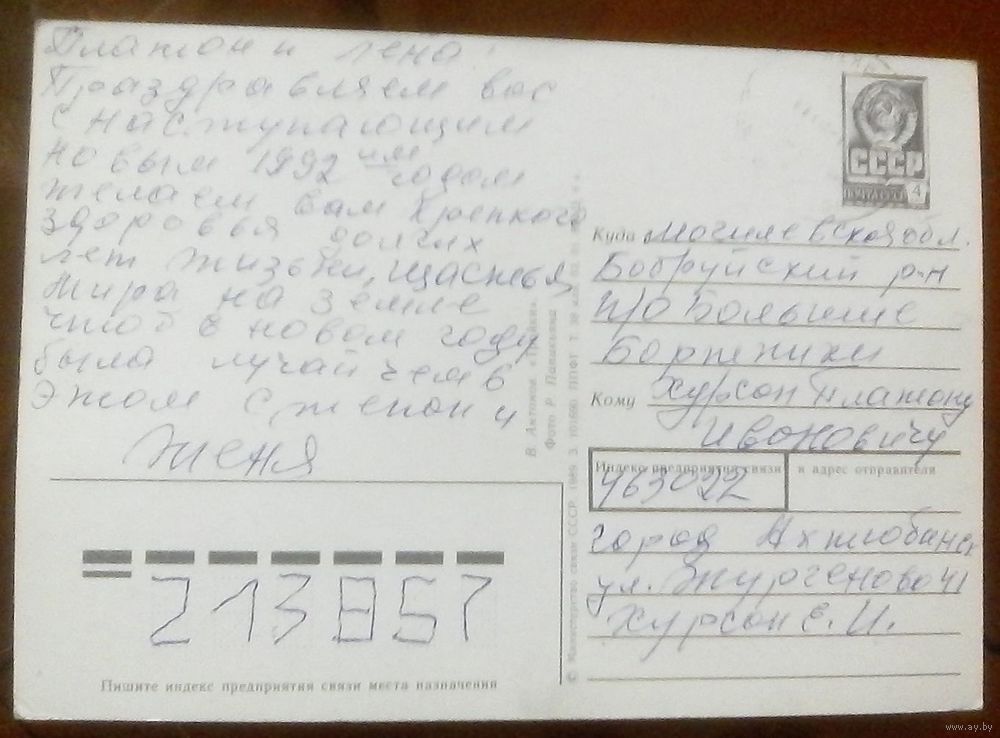 Платон и лена!
Праздравляем вас
с наступающим
новым 1992 им годом
желаем вам крепкого
здоровья долгих
лет жизьни, щастья
мира на земле
чтоб в новом году
было лучай чем в
этом Степон и
Женя
СССР
ПОЧТА
4
Куда Могилевской обл.
Бобруйский р-н
п/о Большие
Бортники
Кому Хурсон Платону
Ивоновичу
Индекс предприятия связи и адрес отправителя
463022
город Актюбинск
ул. Жургеново 41
Хурсон С. И.
213857
Пишите индекс предприятия связи места назначения
© Министерство связи СССР. 1989.
www.ay.by